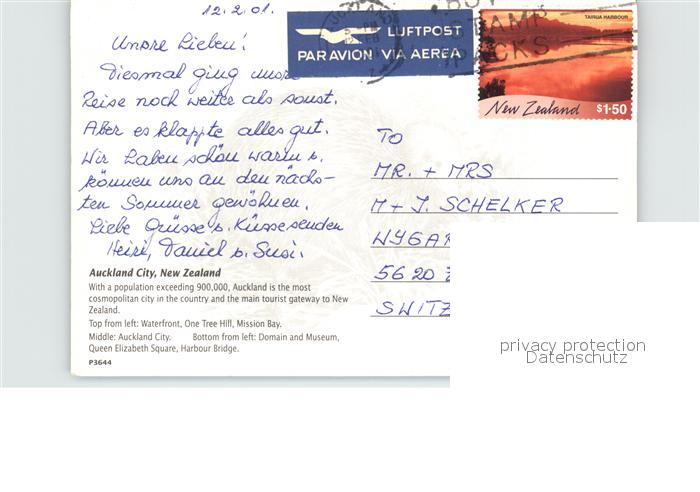 12.2.01.
Unsre Lieben!
Diesmal ging unsre
Reise noch weiter als sonst.
Aber es klappte alles gut.
Wir haben schön warm u.
können uns an den näch-
sten Sommer gewöhnen.
Liebe Grüsse u. Küsse senden
Heini, Daniel u. Susi.
Auckland City, New Zealand
With a population exceeding 900,000, Auckland is the most
cosmopolitan city in the country and the main tourist gateway to New
Zealand.
Top from left: Waterfront, One Tree Hill, Mission Bay.
Middle: Auckland City. Bottom from left: Domain and Museum,
Queen Elizabeth Square, Harbour Bridge.
P3644
LUFTPOST
PAR AVION VIA AEREA
STAMP
PACKS
TAIRUA HARBOUR
New Zealand $1·50
TO
MR. + MRS
M + J. SCHELKER
5620
privacy protection
Datenschutz